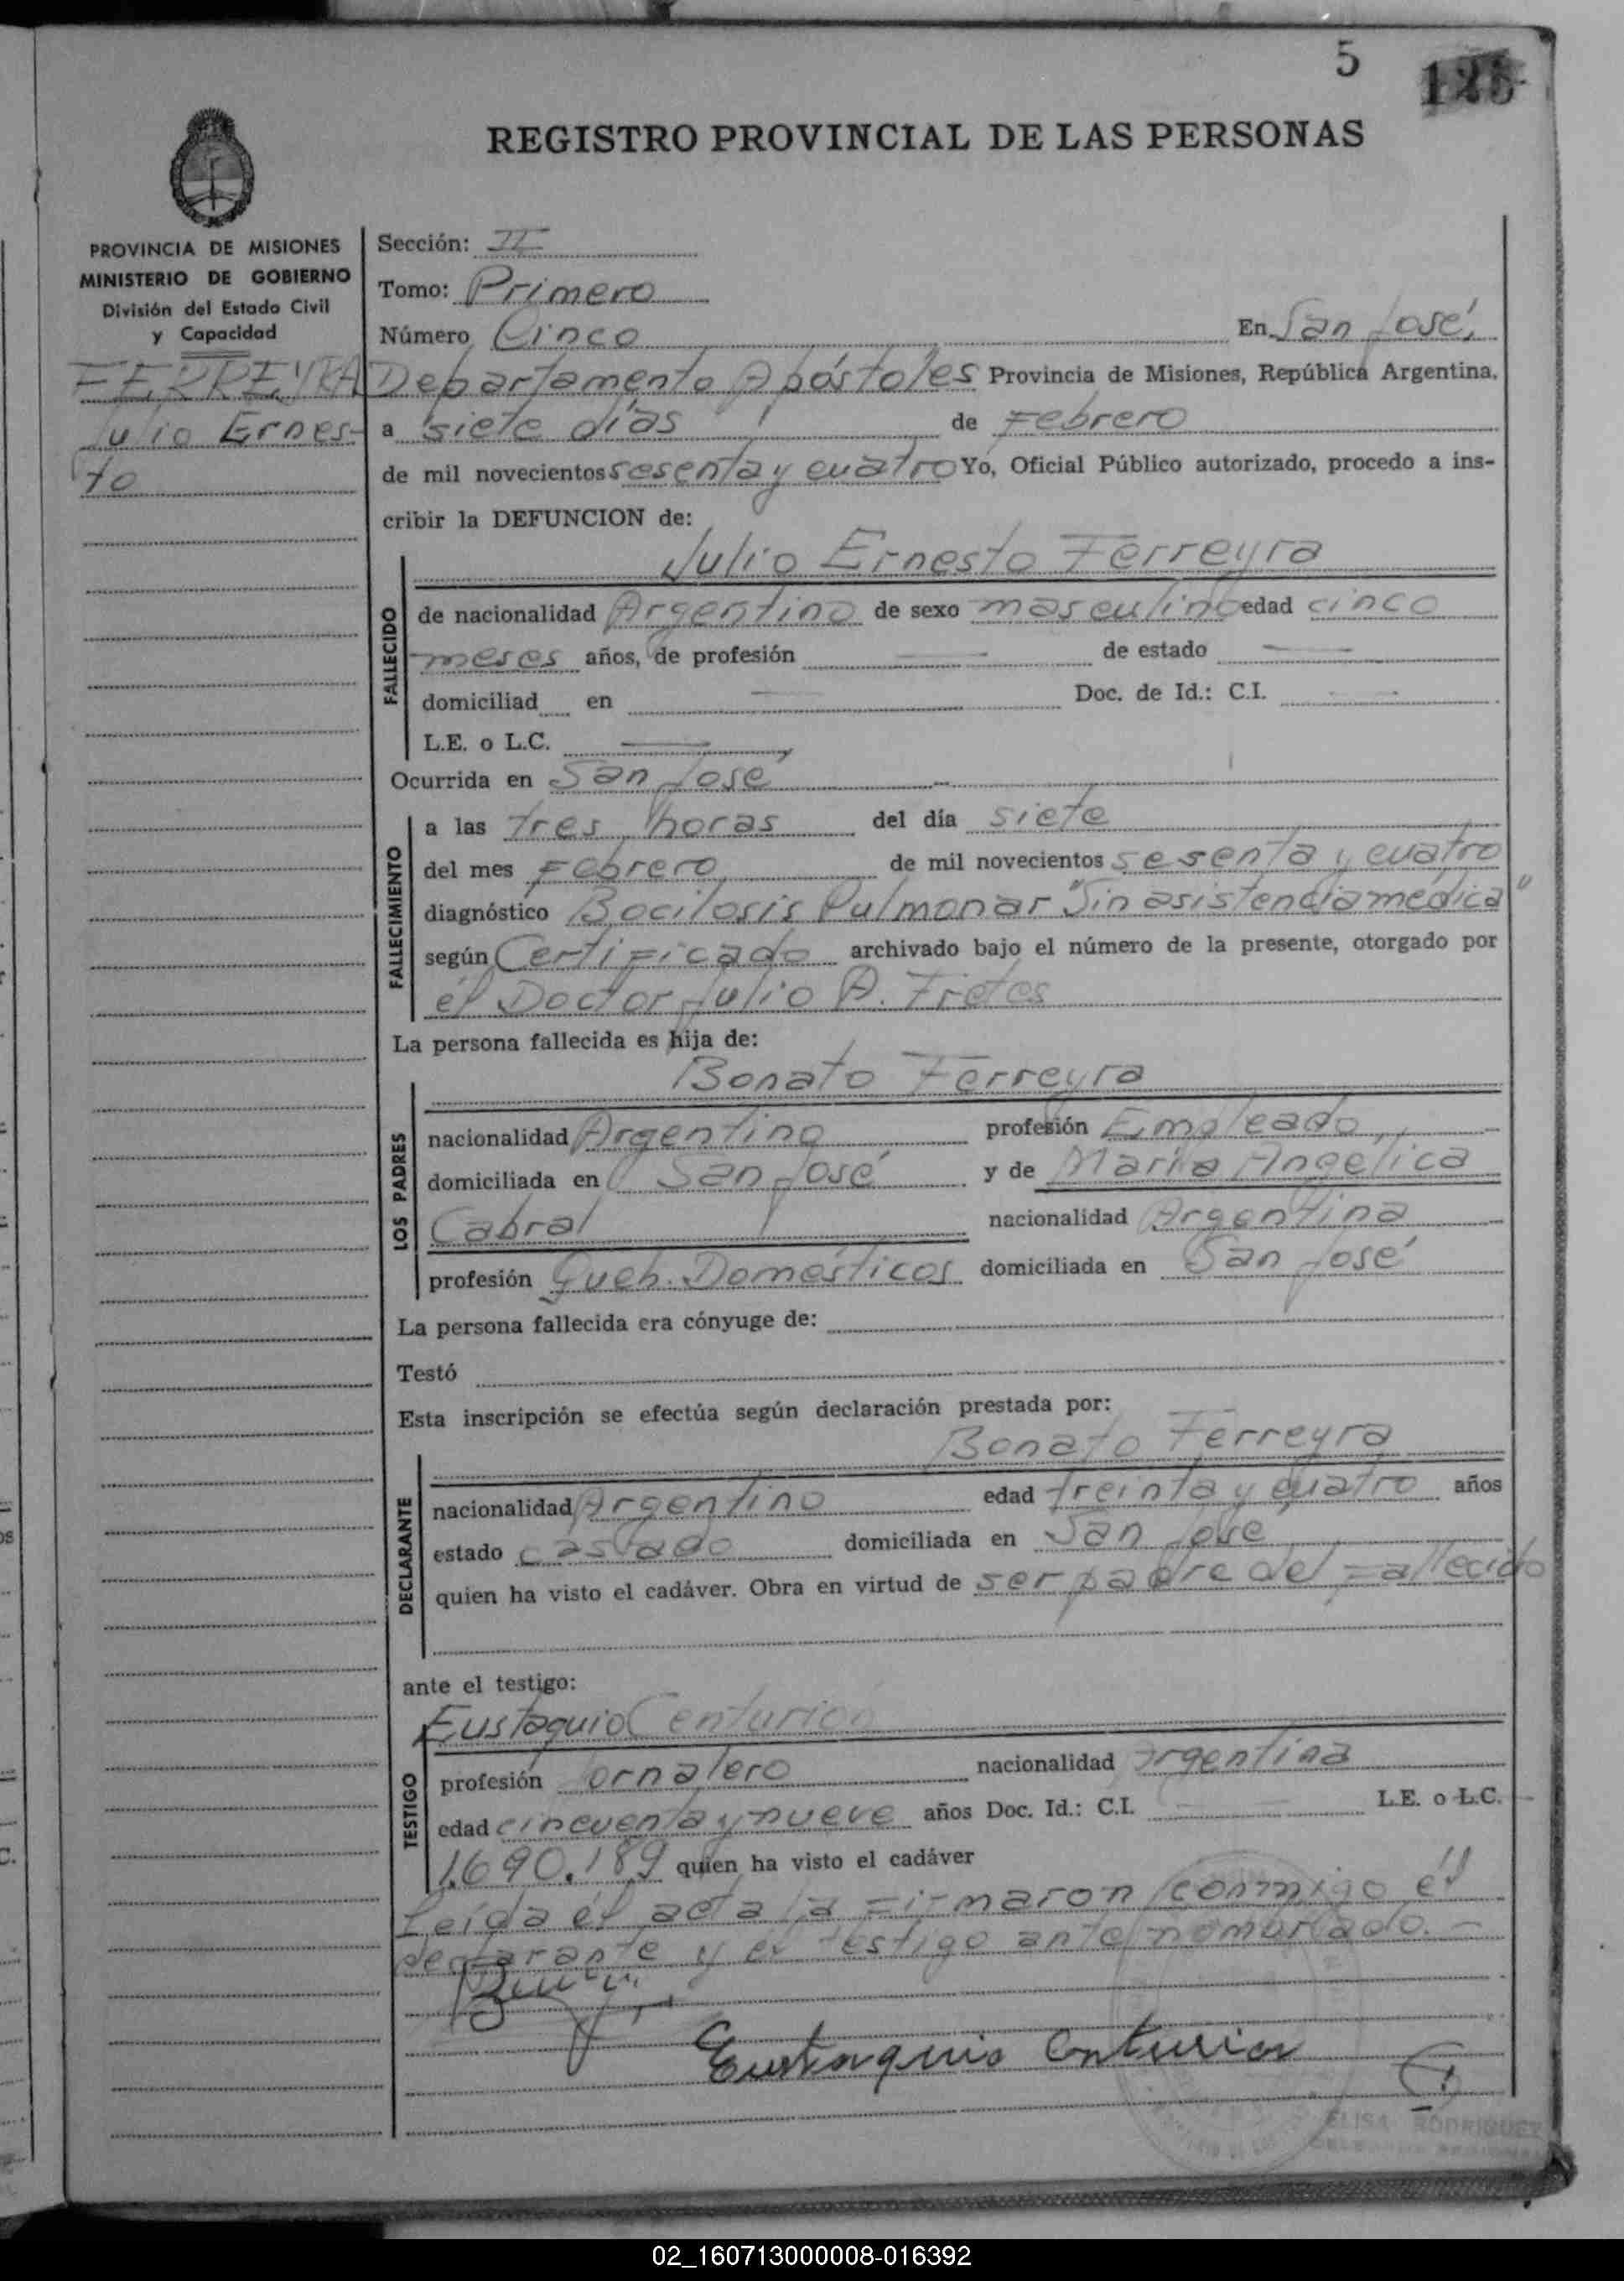 5
125
REGISTRO PROVINCIAL DE LAS PERSONAS
PROVINCIA DE MISIONES
MINISTERIO DE GOBIERNO
División del Estado Civil
y Capacidad
FERREYRA
Julio Ernes-
to
Sección: II
Tomo: Primero
Número Cinco En San José,
Departamento Apóstoles Provincia de Misiones, República Argentina,
a siete días de Febrero
de mil novecientos sesenta y cuatro Yo, Oficial Público autorizado, procedo a ins-
cribir la DEFUNCION de:
Julio Ernesto Ferreyra
FALLECIDO
de nacionalidad Argentino de sexo masculino edad cinco
meses años, de profesión — de estado —
domiciliad en — Doc. de Id.: C.I. —
L.E. o L.C. —
Ocurrida en San José
FALLECIMIENTO
a las tres horas del día siete
del mes Febrero de mil novecientos sesenta y cuatro
diagnóstico Bocilosis Pulmonar "Sin asistencia médica"
según Certificado archivado bajo el número de la presente, otorgado por
él Doctor Julio A. Fretes
La persona fallecida es hija de:
Bonato Ferreyra
LOS PADRES
nacionalidad Argentino profesión Empleado
domiciliada en San José y de María Angelica
Cabral nacionalidad Argentina
profesión Queh. Domésticos domiciliada en San José
La persona fallecida era cónyuge de:
Testó
Esta inscripción se efectúa según declaración prestada por:
Bonato Ferreyra
DECLARANTE
nacionalidad Argentino edad treinta y cuatro años
estado casado domiciliada en San José
quien ha visto el cadáver. Obra en virtud de ser padre del Fallecido
ante el testigo:
Eustaquio Centurion
TESTIGO
profesión Jornalero nacionalidad Argentina
edad cincuenta y nueve años Doc. Id.: C.I. — L.E. o L.C.
1.690.189 quien ha visto el cadáver
Leída él acta la Firmaron conmigo él
declarante y el testigo ante nombrado.—
Eustaquio Centurion
ELISA RODRIGUEZ
02_160713000008-016392